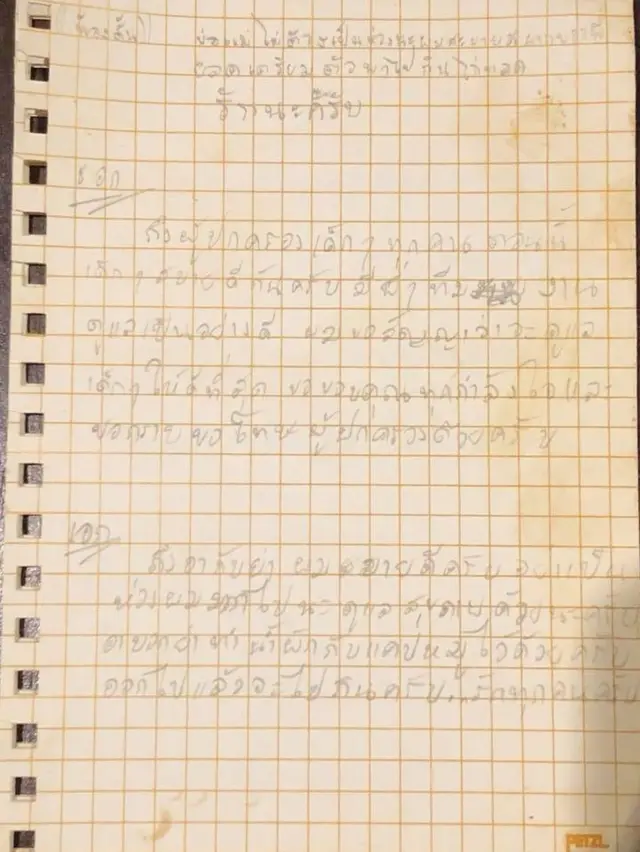 พ่อแม่ ไม่ต้องเป็นห่วงนะผมสบายดี
ยอดเตรียมตัวพาไปกินไก่ทอด
รักนะครับ
โค้ช เอก
ถึงผู้ปกครองเด็กๆ ทุกคน ตอนนี้
เด็กๆ สบายดีกันครับ มีพี่ๆ ทีมงาน
ดูแลเป็นอย่างดี ผมขอสัญญาว่าจะดูแล
เด็กๆ ให้ดีที่สุด ขอขอบคุณทุกกำลังใจและ
ขอกราบขอโทษผู้ปกครองด้วยครับ
เอก
ถึงอากับย่า ผมสบายดีครับ อย่าเป็น
ห่วงผมมากไปนะ ดูแลสุขภาพด้วยนะครับ
ย่าทำน้ำผักกับแคปหมูไว้ด้วยครับ
ออกไปแล้วจะไปกินครับ..รักทุกคนครับ
PETZL